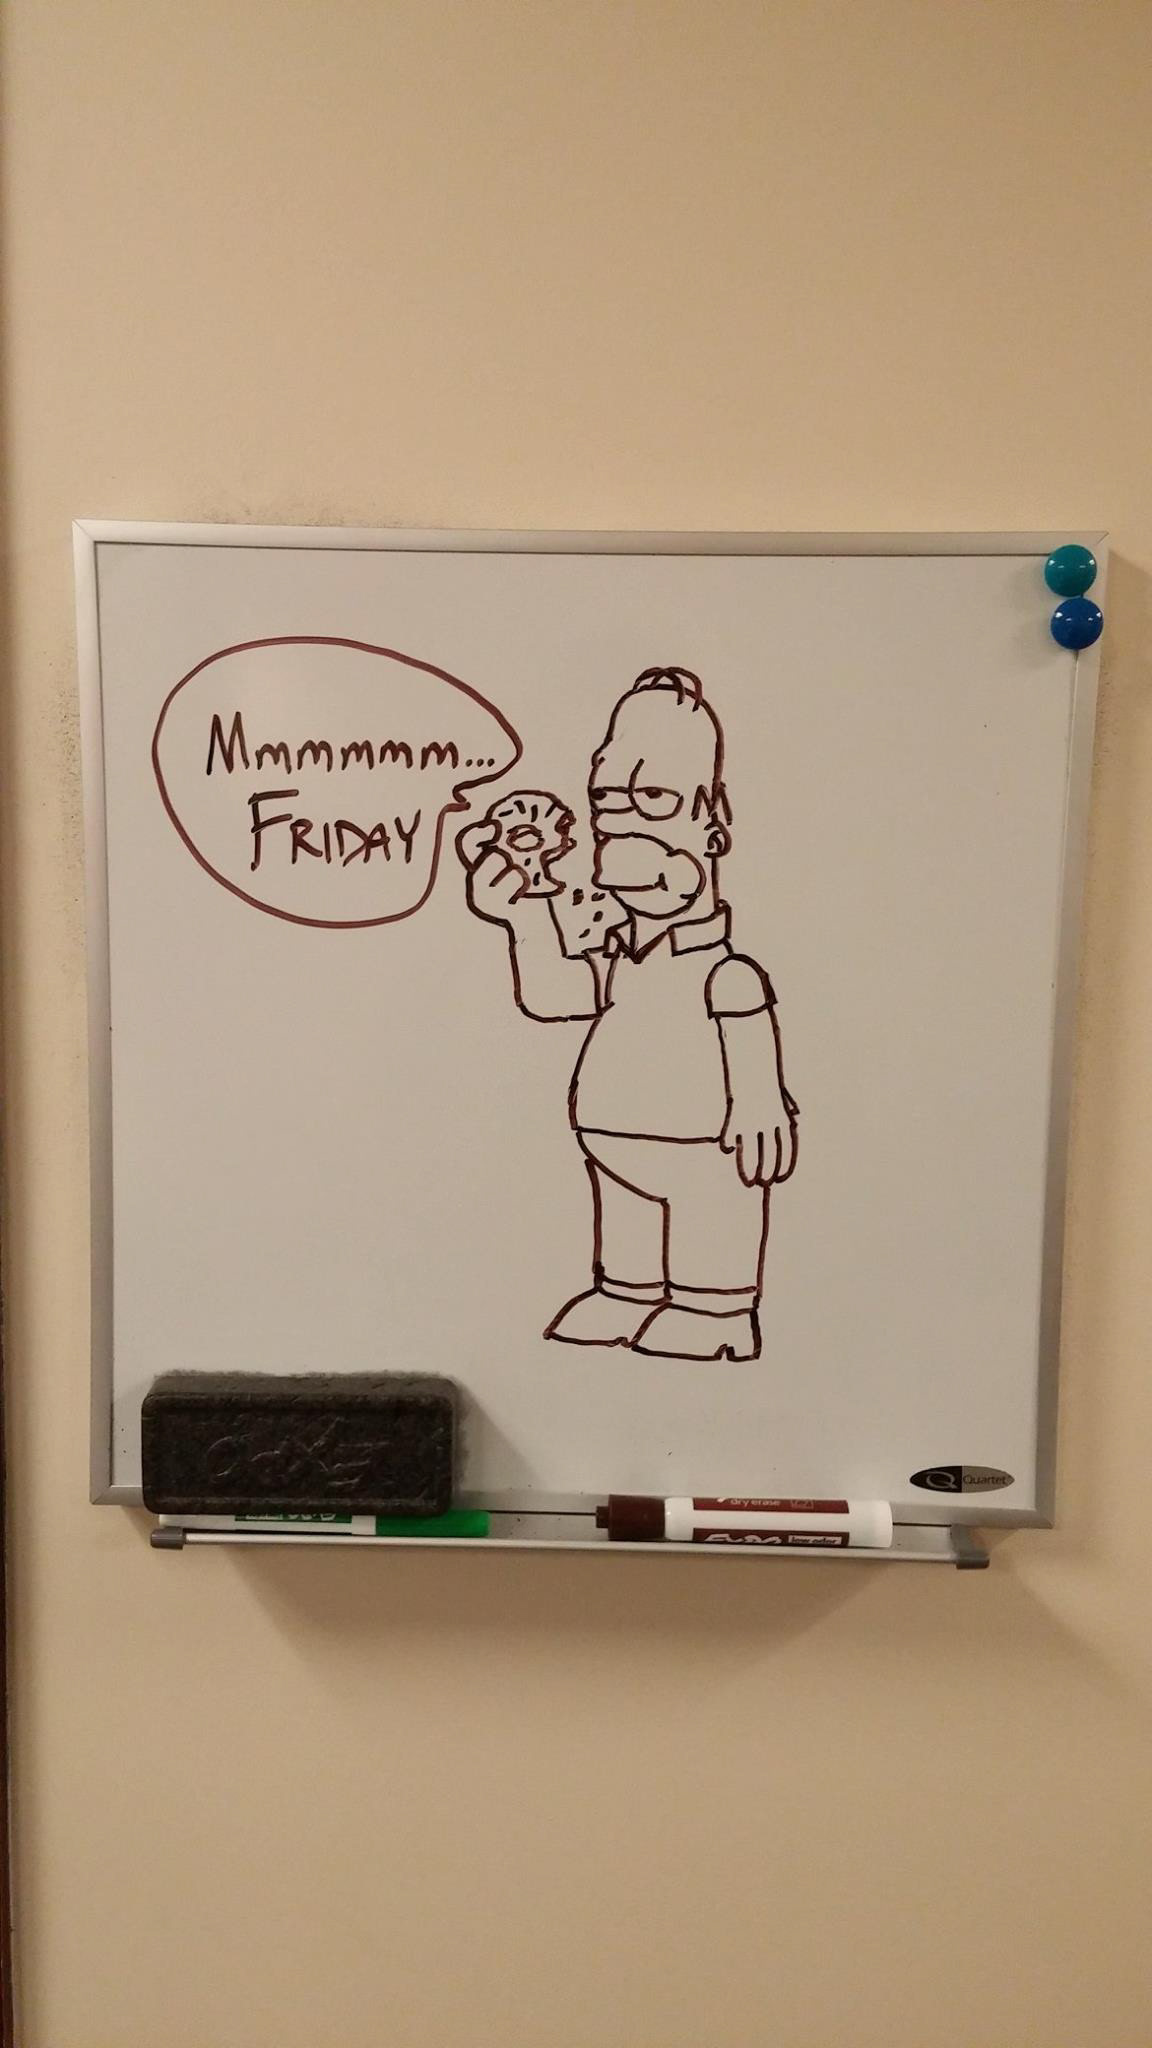 Mmmmmm...
FRIDAY
EXPO
Quartet
dry erase
EXPO
low odor